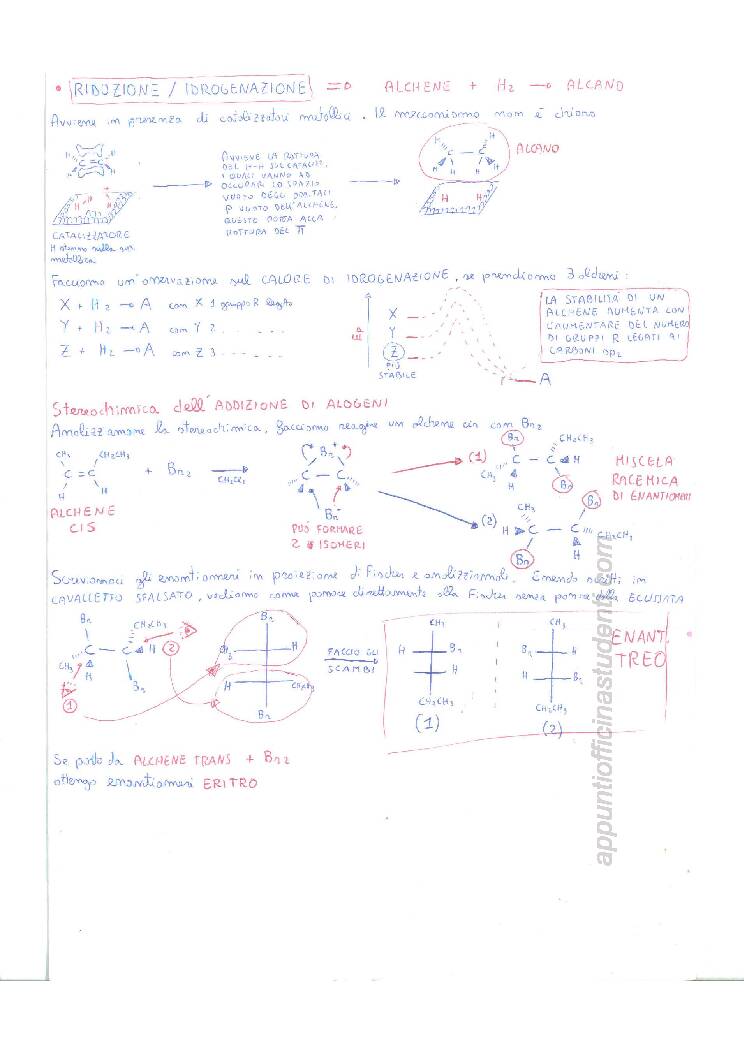 • RIDUZIONE / IDROGENAZIONE => ALCHENE + H2 → ALCANO
Avviene in presenza di catalizzatori metallici. Il meccanismo non è chiaro
AVVIENE LA ROTTURA
DEL H-H SUL CATALIZZ.
I QUALI VANNO AD
OCCUPARE LO SPAZIO
VUOTO DEGLI ORBITALI
P VUOTO DELL'ALCHENE,
QUESTO PORTA ALLA
ROTTURA DEL π
ALCANO
CATALIZZATORE
H stanno sulla sup.
metallica
Facciamo un'osservazione sul CALORE DI IDROGENAZIONE, se prendiamo 3 alcheni:
X + H2 → A con X 1 gruppo R legato
Y + H2 → A con Y 2 - - - - - -
Z + H2 → A con Z 3 - - - - - -
X
Y
Z
PIÙ
STABILE
A
LA STABILITÀ DI UN
ALCHENE AUMENTA CON
L'AUMENTARE DEL NUMERO
DI GRUPPI R LEGATI AI
CARBONI SP2
Stereochimica dell'ADDIZIONE DI ALOGENI
Analizziamone la stereochimica, facciamo reagire un alchene cis con Br2
CH3 CH2CH3
C = C
H H
+ Br2
CH2Cl2
ALCHENE
CIS
Br+
C - C
Br-
PUÒ FORMARE
2 ISOMERI
(1)
Br CH2CH3
C - C H
CH3 H Br
(2)
CH3 Br
H C - C CH2CH3
Br H
MISCELA
RACEMICA
DI ENANTIOMERI
Scriviamoci gli enantiomeri in proiezione di Fischer e analizziamoli. Essendo scritti in
CAVALLETTO SFALSATO, vediamo come passare direttamente alla Fischer senza passare dalla ECLISSATA
Br CH2CH3
C - C H
CH3 H Br
1
2
Br
CH3 H
H CH2CH3
Br
FACCIO GLI
SCAMBI
CH3
H Br
Br H
CH2CH3
(1)
CH3
Br H
H Br
CH2CH3
(2)
ENANT.
TREO
Se parto da ALCHENE TRANS + Br2
ottengo enantiomeri ERITRO
appuntiofficinastudenti.com